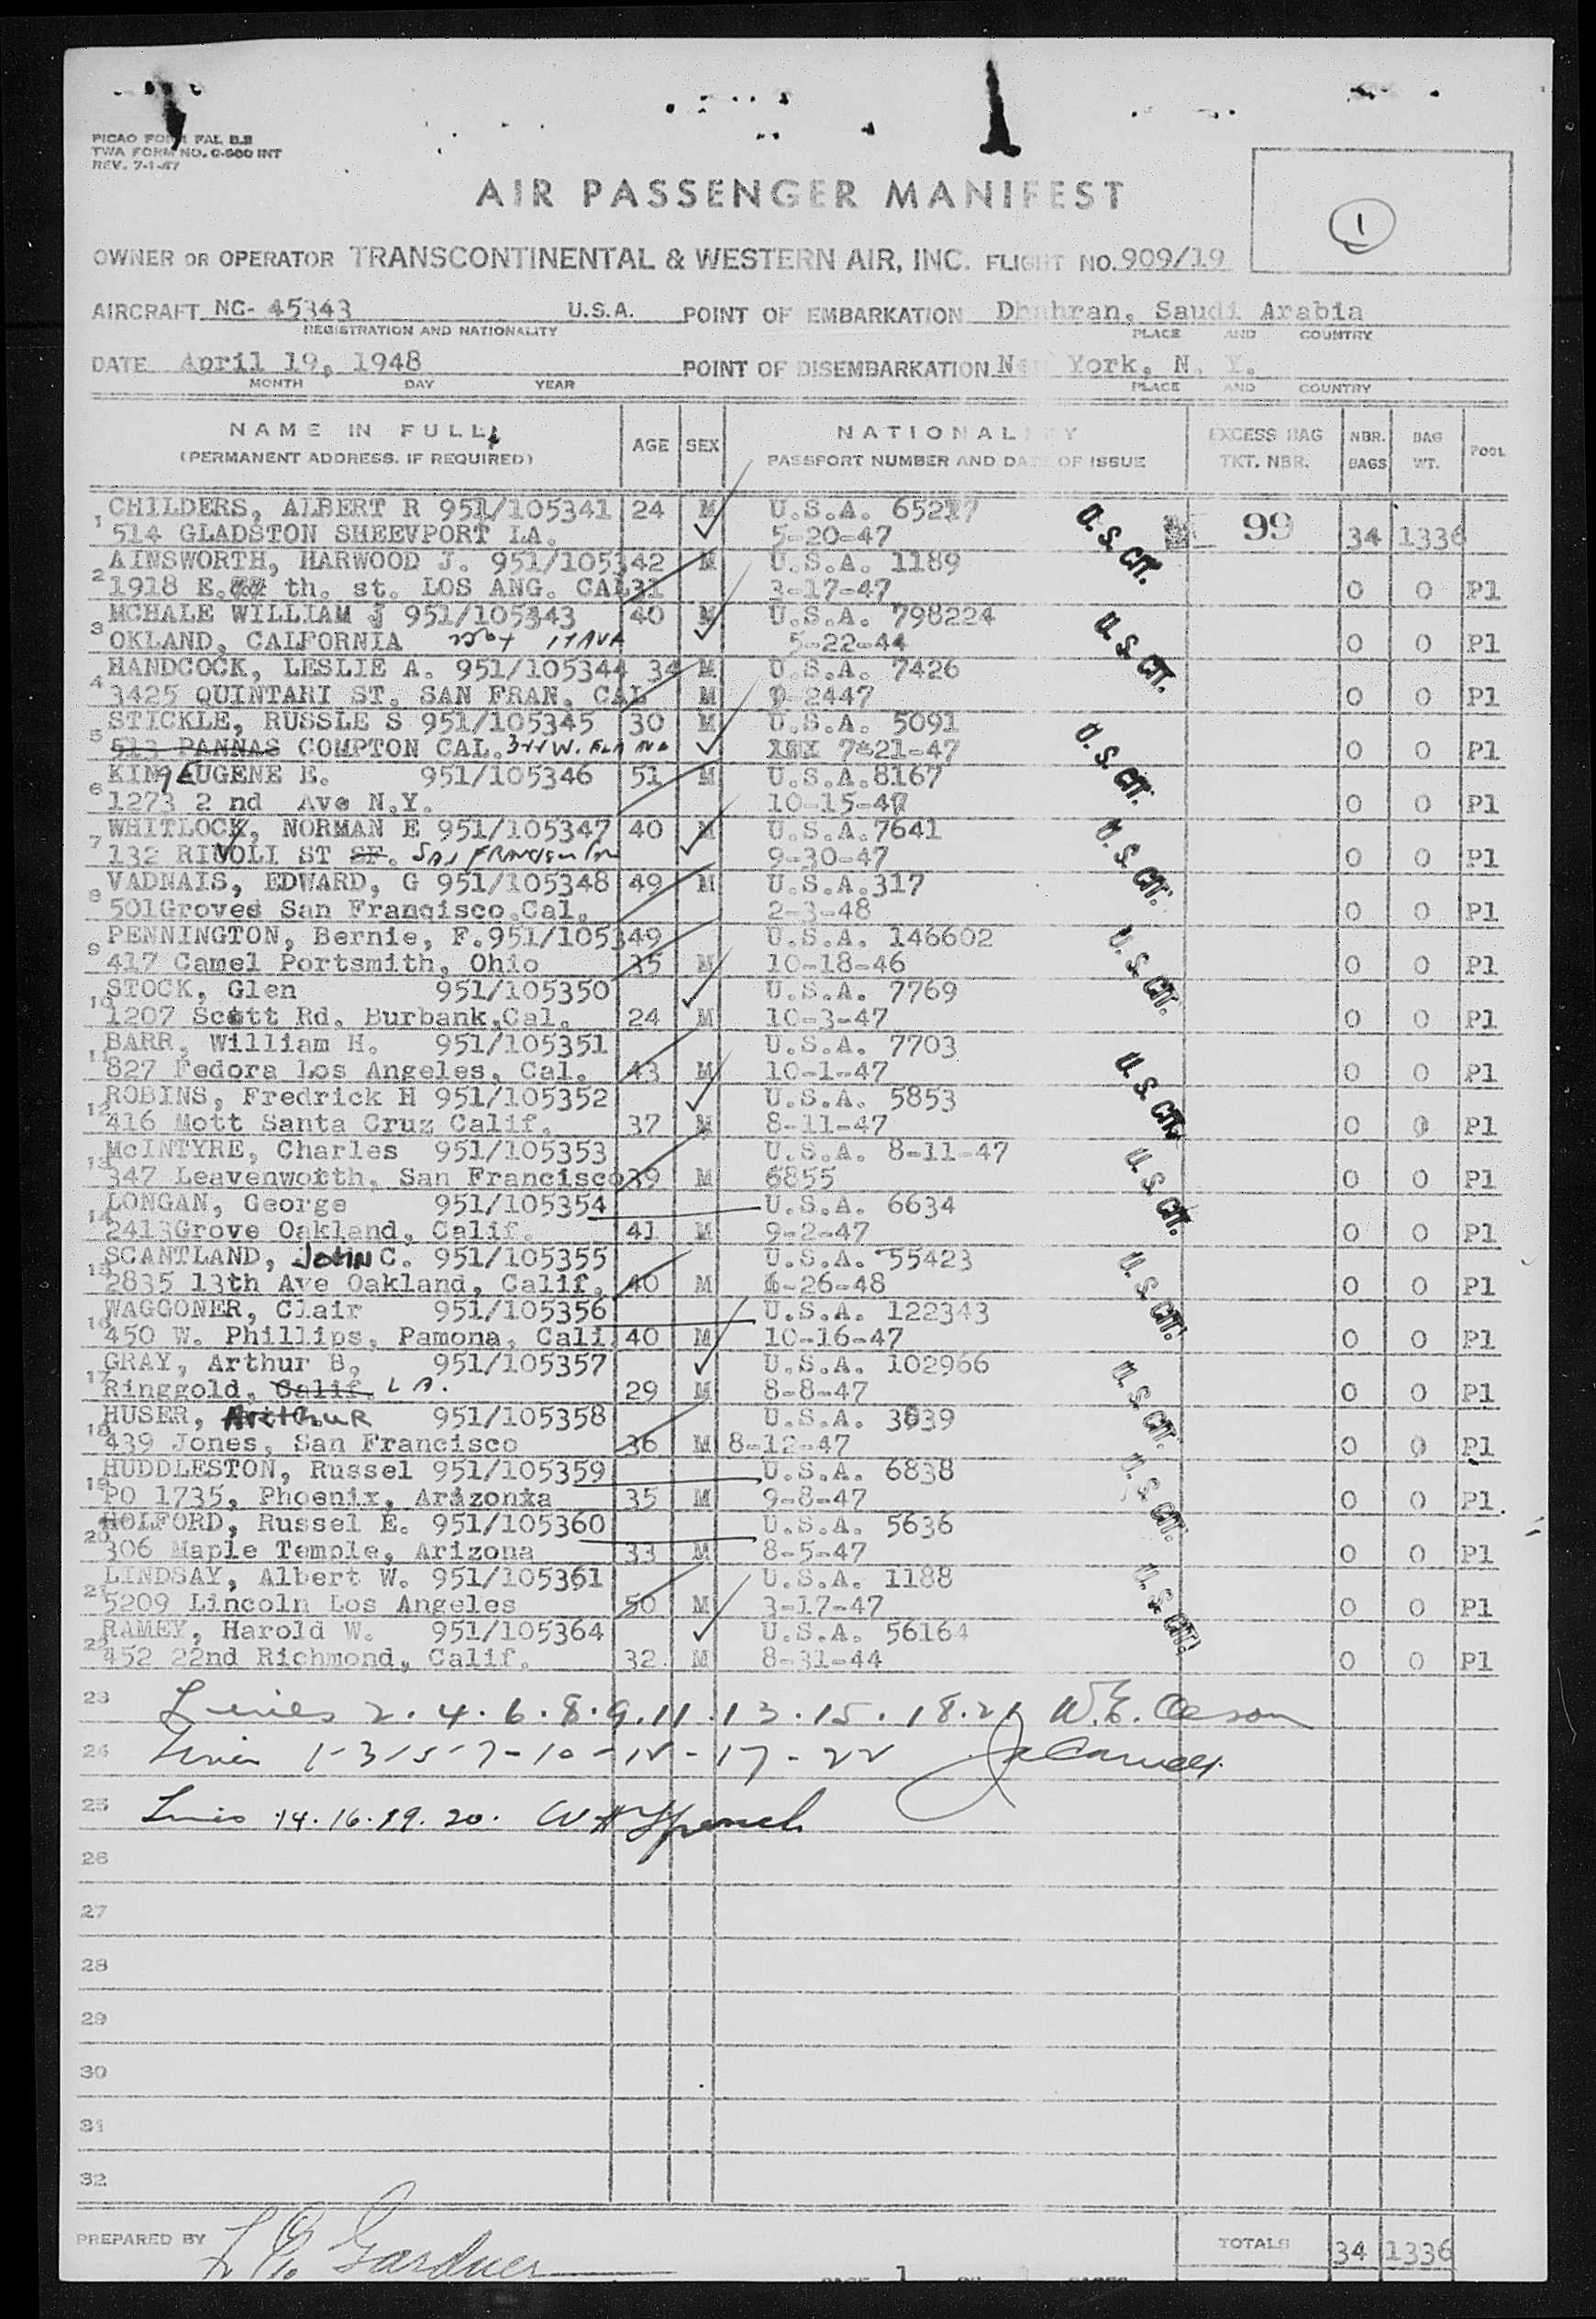 PICAO FORM FAL B.2
TWA FORM NO. C-500 INT
REV. 7-1-47
AIR PASSENGER MANIFEST
1
OWNER OR OPERATOR TRANSCONTINENTAL & WESTERN AIR, INC. FLIGHT NO. 909/19
AIRCRAFT NC- 45343 U.S.A. POINT OF EMBARKATION Dhahran, Saudi Arabia
REGISTRATION AND NATIONALITY PLACE AND COUNTRY
DATE April 19, 1948 POINT OF DISEMBARKATION New York, N. Y.
MONTH DAY YEAR PLACE AND COUNTRY
NAME IN FULL AGE SEX NATIONALITY EXCESS BAG NBR. BAG POOL
(PERMANENT ADDRESS. IF REQUIRED) PASSPORT NUMBER AND DATE OF ISSUE TKT. NBR. BAGS WT.
1 CHILDERS, ALBERT R 951/105341 24 M U.S.A. U. S. CIT.
514 GLADSTON SHEEVPORT LA. 5-20-47 99 34 1336
2 AINSWORTH, HARWOOD J. 951/105342 M U.S.A. 1189
1918 E. th. st. LOS ANG. CAL 31 3-17-47 0 0 Pl
3 MCHALE WILLIAM J 951/105343 40 M U.S.A. 798224 U. S. CIT.
OKLAND, CALIFORNIA 17 AVE 5-22-44 0 0 Pl
4 HANDCOCK, LESLIE A. 951/105344 34 M U.S.A. 7426
3425 QUINTARI ST. SAN FRAN. CAL M 2447 0 0 Pl
5 STICKLE, RUSSLE S 951/105345 30 M U.S.A. 5091 U. S. CIT.
513 PANNAS COMPTON CAL. 7-21-47 0 0 Pl
6 KINg EUGENE E. 951/105346 51 M U.S.A.8167
1273 2 nd Ave N.Y. 10-15-47 0 0 Pl
7 WHITLOCK, NORMAN E 951/105347 40 M U.S.A.7641 U. S. CIT.
132 RIVOLI ST SF. SAN FRANCISCO 9-30-47 0 0 Pl
8 VADNAIS, EDWARD, G 951/105348 49 M U.S.A.317
501Groves San Francisco.Cal. 2-3-48 0 0 Pl
9 PENNINGTON, Bernie, F.951/105349 U.S.A. 146602 U. S. CIT.
417 Camel Portsmith, Ohio 35 M 10-18-46 0 0 Pl
10 STOCK, Glen 951/105350 U.S.A. 7769
1207 Scott Rd. Burbank,Cal. 24 M 10-3-47 0 0 Pl
11 BARR, William H. 951/105351 U.S.A. 7703 U. S. CIT.
827 Fedora Los Angeles, Cal. 43 M 10-1-47 0 0 Pl
12 ROBINS, Fredrick H 951/105352 U.S.A. 5853
416 Mott Santa Cruz Calif. 37 M 8-11-47 0 0 Pl
13 McINTYRE, Charles 951/105353 U.S.A. 8-11-47 U. S. CIT.
347 Leavenworth, San Francisco 39 M 6855 0 0 Pl
14 LONGAN, George 951/105354 U.S.A. 6634
2413Grove Oakland, Calif. 41 M 9-2-47 0 0 Pl
15 SCANTLAND, JOHN C. 951/105355 U.S.A. 55423 U. S. CIT.
2835 13th Ave Oakland, Calif. 40 M 6-26-48 0 0 Pl
16 WAGGONER, Clair 951/105356 U.S.A. 122343
450 W. Phillips, Pamona, Cali 40 M 10-16-47 0 0 Pl
17 GRAY, Arthur B, 951/105357 U.S.A. 102966 U. S. CIT.
Ringgold, Calif. LA. 29 M 8-8-47 0 0 Pl
18 HUSER, ARTHUR 951/105358 U.S.A. 3839
439 Jones, San Francisco 36 M 8-12-47 0 0 Pl
19 HUDDLESTON, Russel 951/105359 U.S.A. 6838 U. S. CIT.
PO 1735, Phoenix, Arizonia 35 M 9-8-47 0 0 Pl.
20 HOLFORD, Russel E. 951/105360 U.S.A. 5636
306 Maple Temple, Arizona 33 M 8-5-47 0 0 Pl
21 LINDSAY, Albert W. 951/105361 U.S.A. 1188 U. S. CIT.
5209 Lincoln Los Angeles 50 M 3-17-47 0 0 Pl
22 RAMEY, Harold W. 951/105364 U.S.A. 56164
452 22nd Richmond, Calif. 32. M 8-31-44 0 0 Pl
23 Lines 2.4.6.8.9.11.13.15.18.21 W.E. Oeson
24 Lines 1-3-5-7-10-12-17-22
25 Lines 14.16.19.20. W H French
26
27
28
29
30
31
32
PREPARED BY Gardner TOTALS 34 1336
PAGE 1 OF PAGES